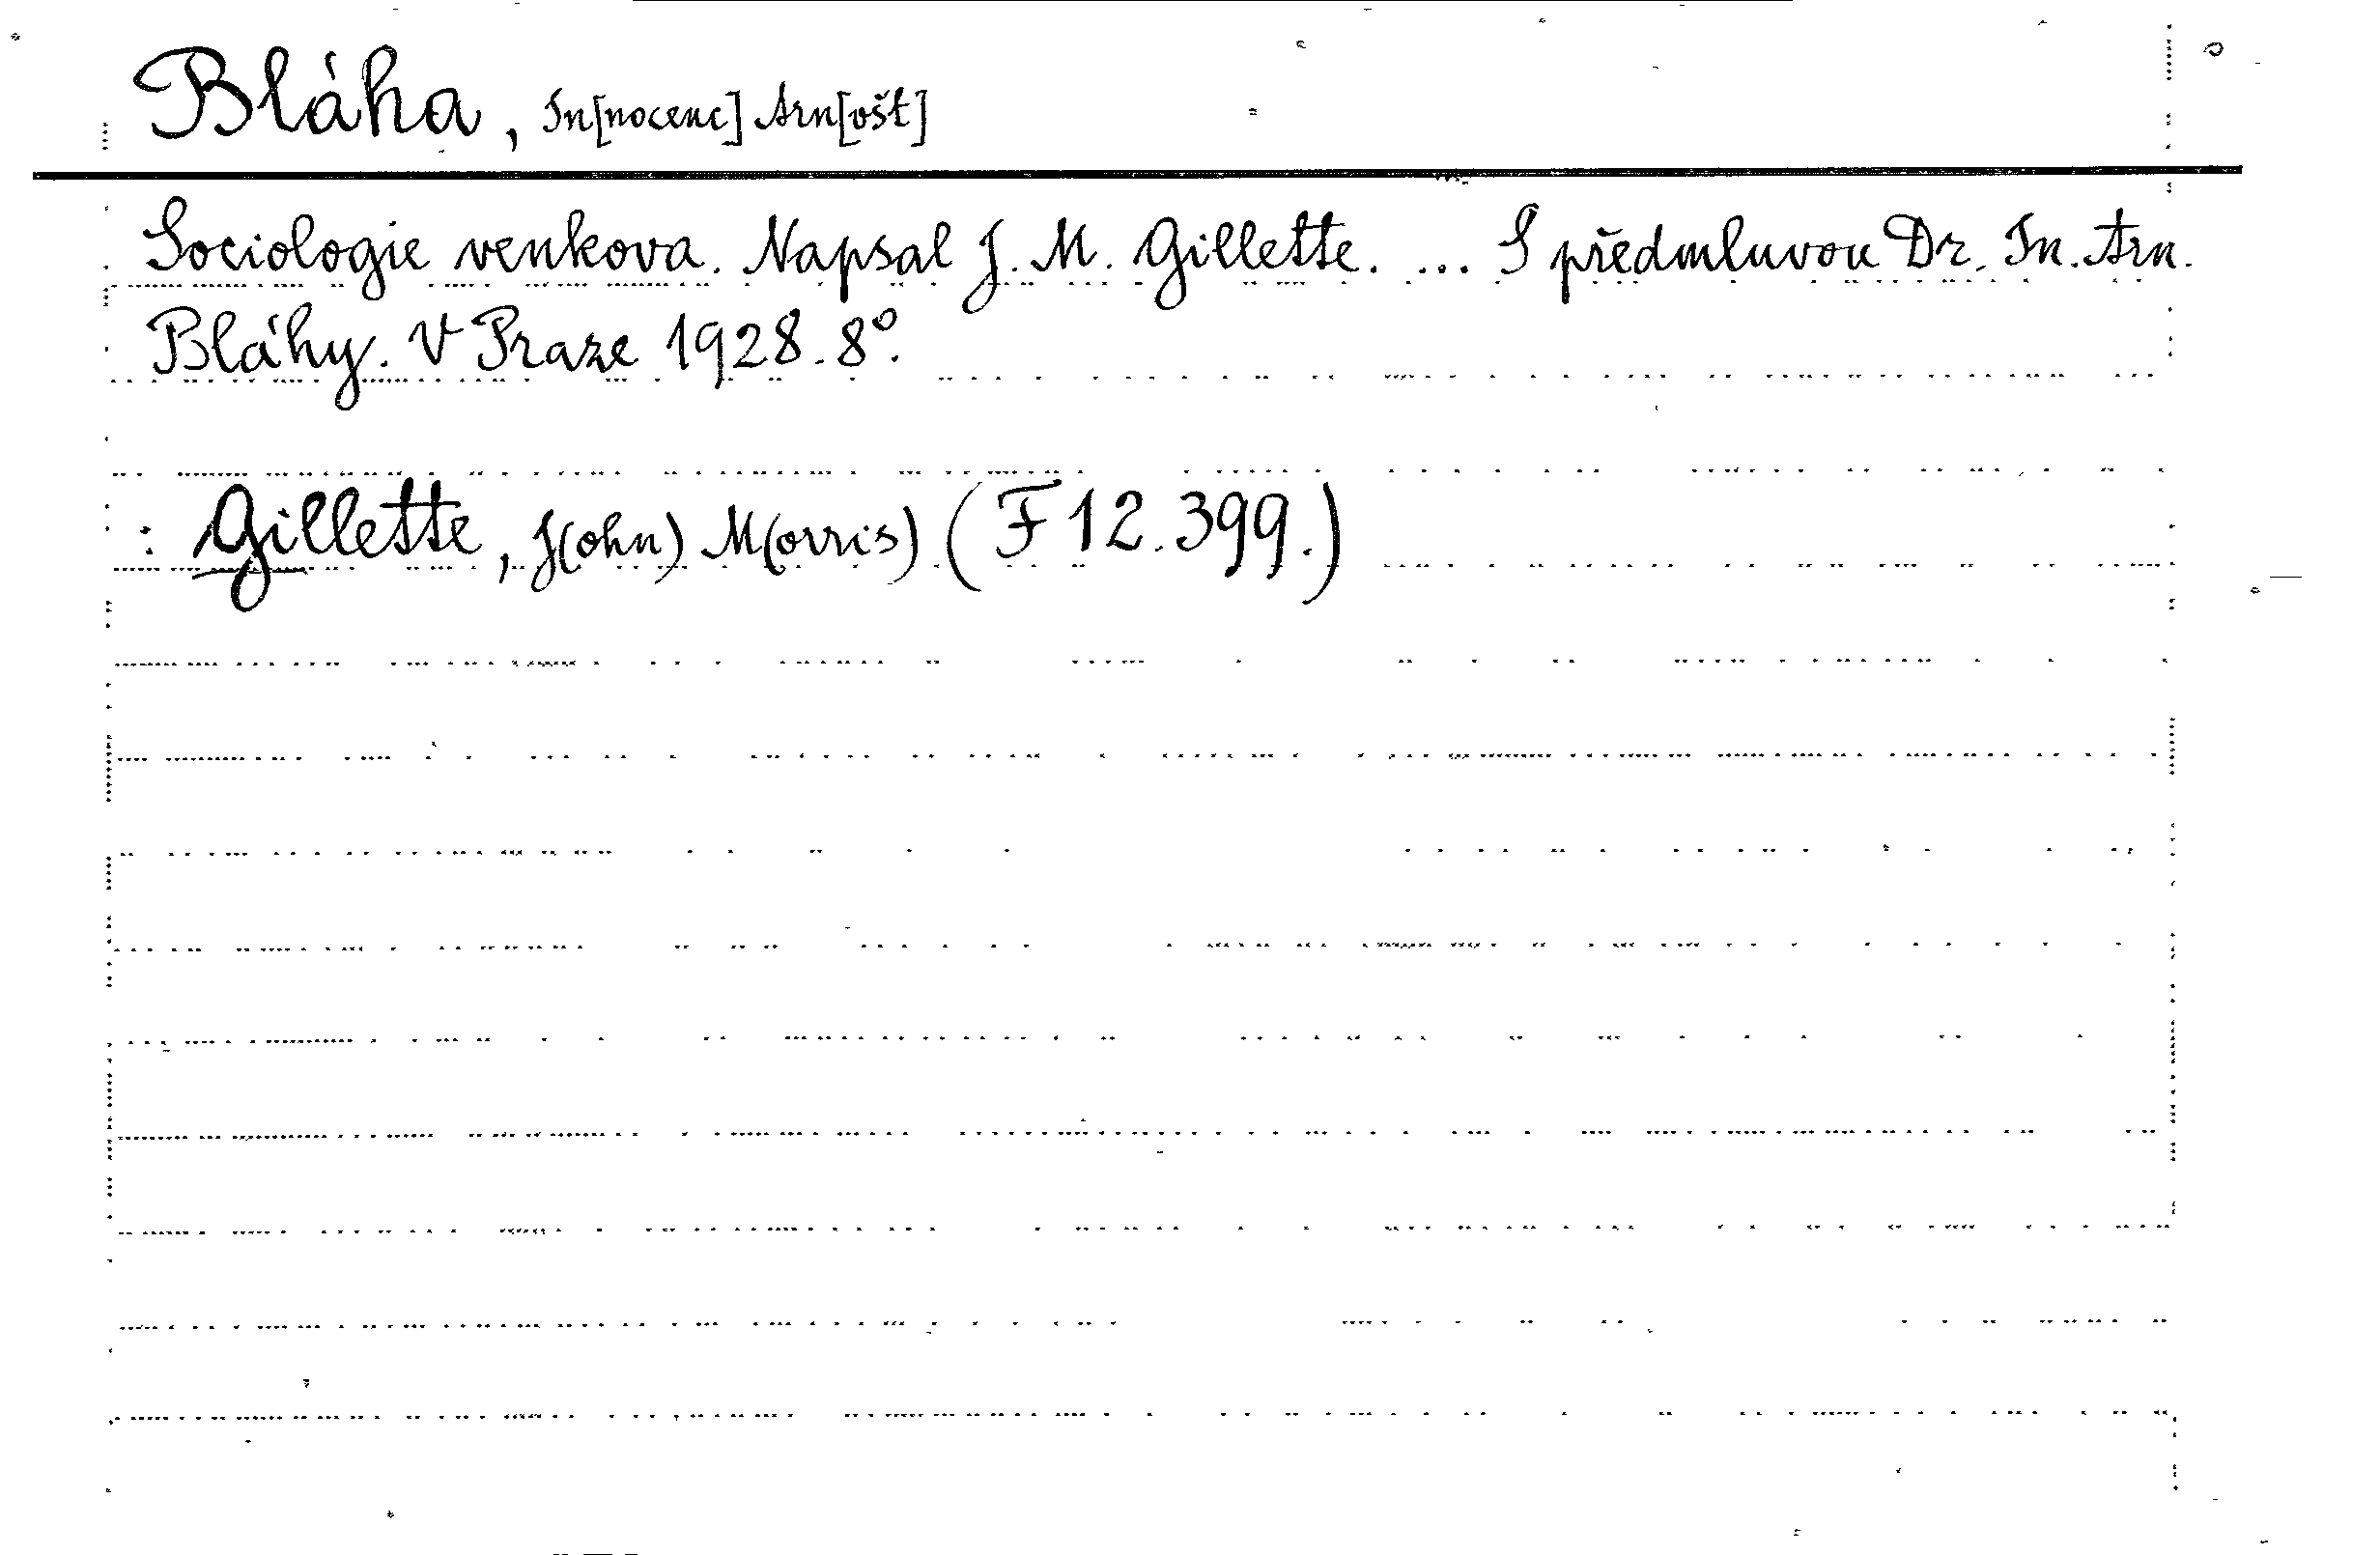 Bláha, In[nocenc] Arn[ošt]
Sociologie venkova. Napsal J. M. Gillette. ... S předmluvou Dr. In. Arn.
Bláhy. V Praze 1928. 8°.
: Gillette, J(ohn) M(orris) (F 12.399.)